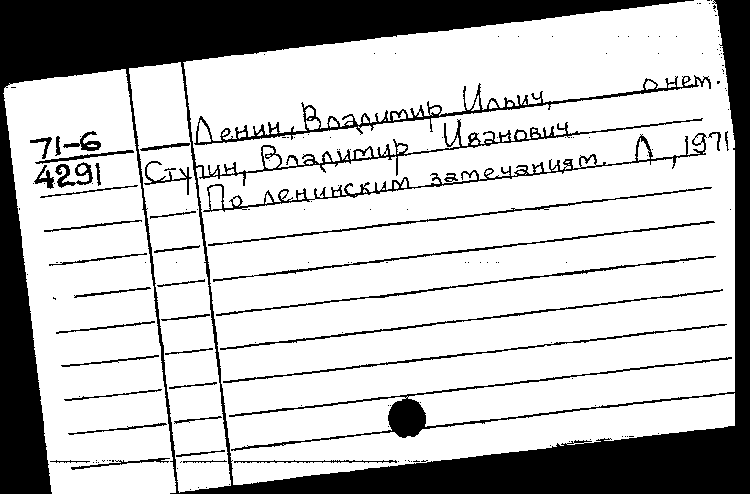 Ленин, Владимир Ильич, о нем.
71-6
4291 Ступин, Владимир Иванович.
По ленинским замечаниям. Л, 1971.